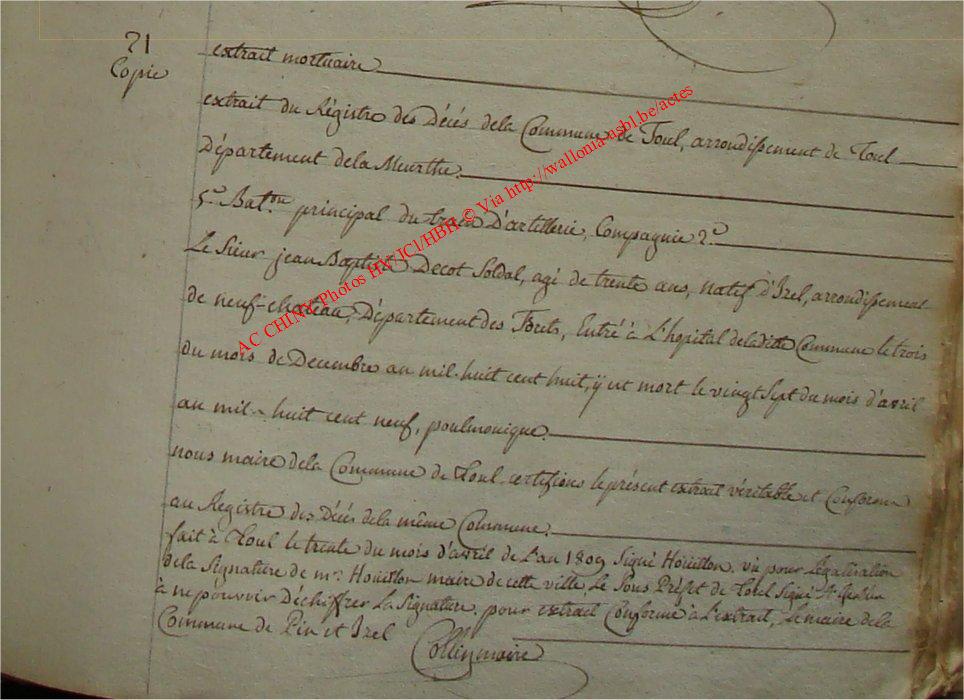 21
Copie
extrait mortuaire
extrait du Régistre des Décés dela Commune de Toul, arrondissement de Toul
Département dela Meurthe.
5e. Bat.on principal du train D'artillerie, Compagnie 2e
Le Sieur jean Baptiste Decot Soldal, agé de trente ans, natif d'Izel, arrondissement
de neuf-chateau, Département des Forets, Entré à L'hopital deladitte Commune le trois
du mois de Decembre an mil-huit cent huit, ÿ est mort le vingt Sept du mois d'avril
an mil-huit cent neuf, poulmonique.
nous maire dela Commune de Toul certifions le présent extrait véritable et Conforme
au Registre des Décés dela même Commune.
fait à Toul le trente du mois d'avril de L'an 1809 Signé Houillon, vu pour Légalisation
dela Signature de mr. Houillon maire de cette ville, Le Sous Préfet de Toul Signé
à ne pouvoir Déchiffrer La Signature, pour extrait Conforme à L'extrait, Le maire dela
Commune de Pin et Izel
Collin maire
AC CHINY Photos HX/JCl/HBH © Via http://wallonia-asbl.be/actes